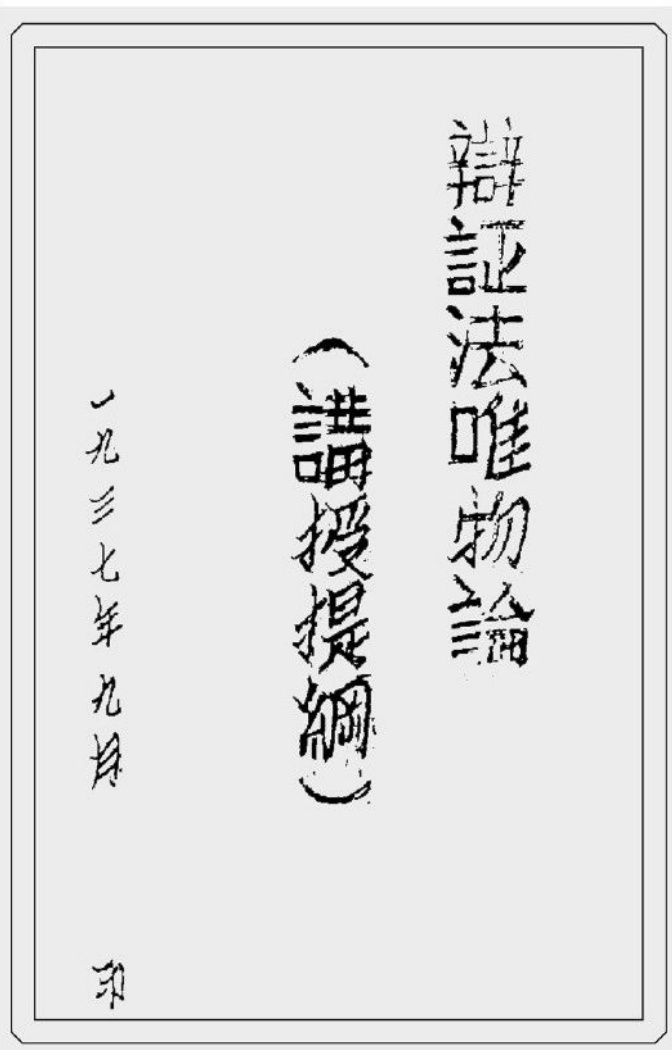 辯証法唯物論
（講授提綱）
一九三七年九月 印